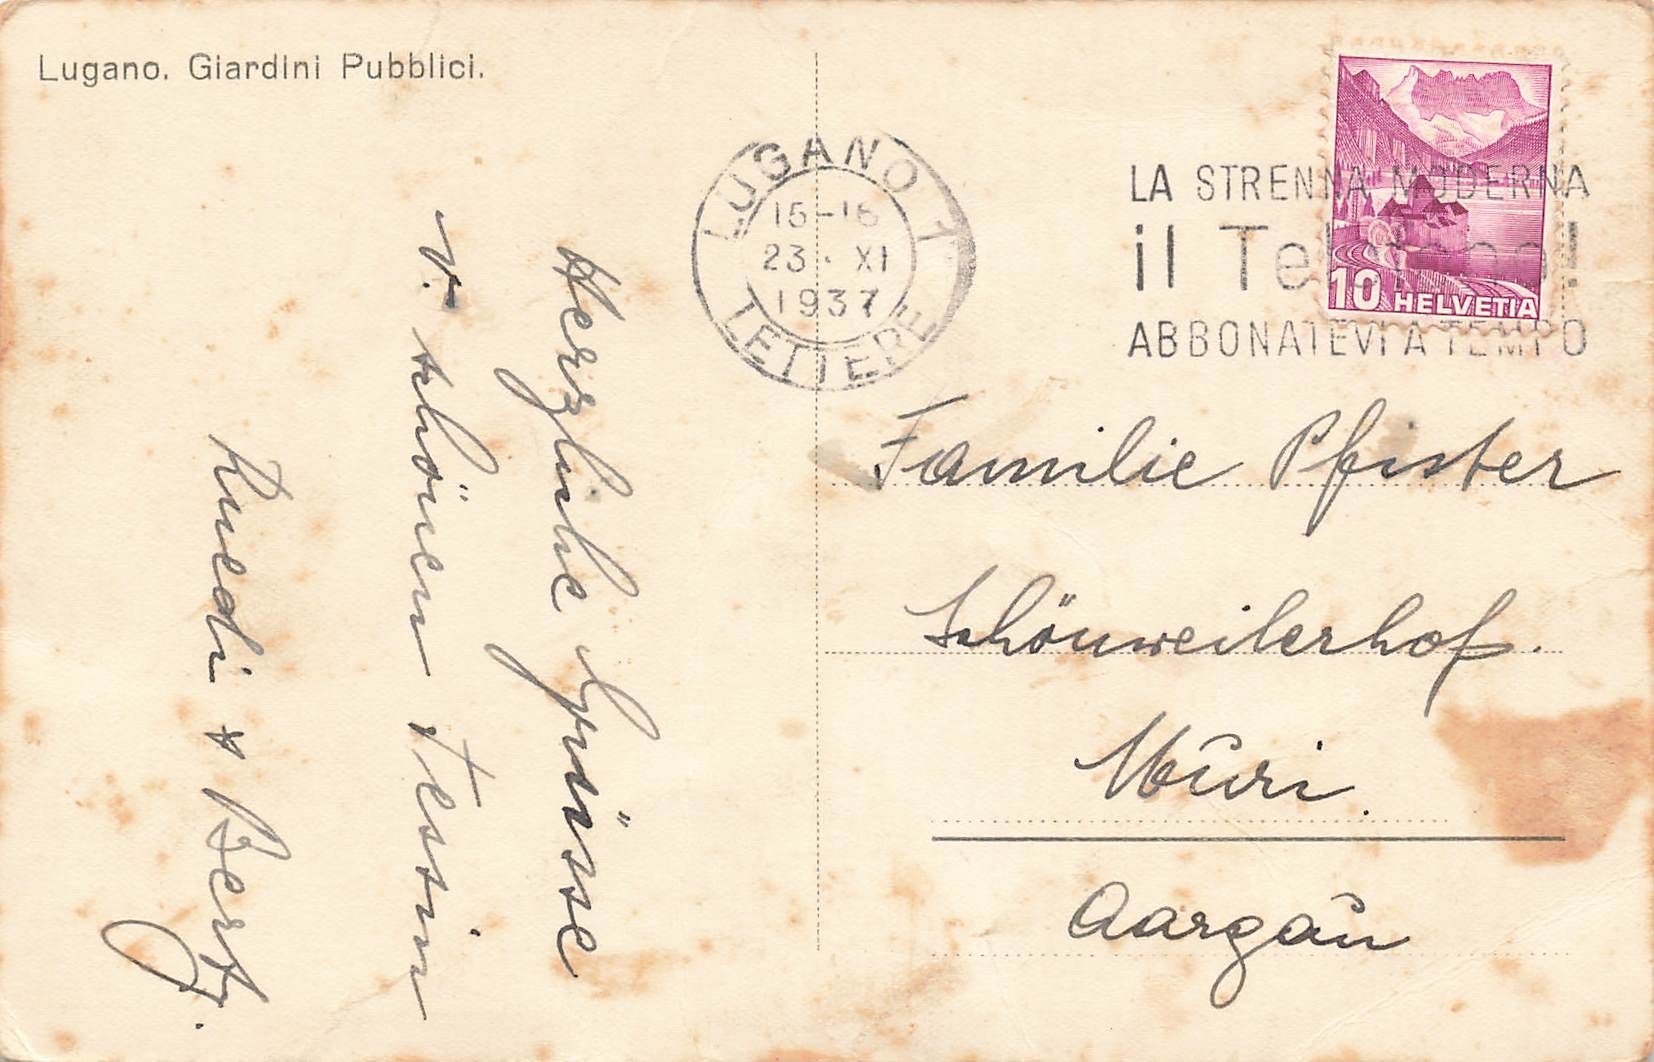 Lugano. Giardini Pubblici.
LUGANO 1
15-16
23. XI
1937
LETTERE
LA STRENNA MODERNA
il Telefono!
ABBONATEVI A TEMPO
10 HELVETIA
Herzliche Grüsse
v. schönen Tessin
Ruedi + Berty.
Familie Pfister
Schönweilerhof.
Muri.
Aargau